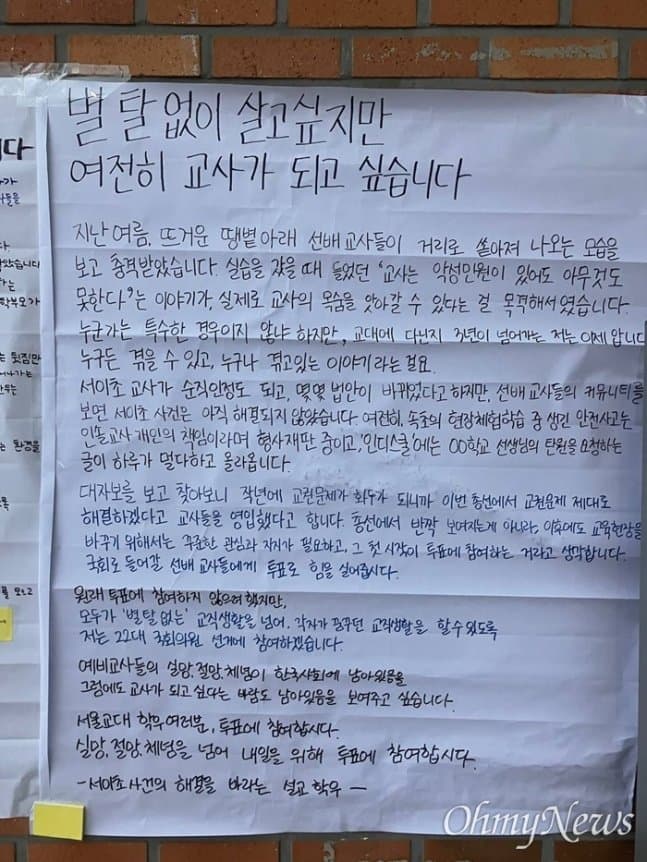 별 탈 없이 살고싶지만
여전히 교사가 되고 싶습니다
지난여름, 뜨거운 땡볕 아래 선배교사들이 거리로 쏟아져 나오는 모습을
보고 충격받았습니다. 실습을 갔을 때 들었던 '교사는 악성민원이 있어도 아무것도
못한다.'는 이야기가, 실제로 교사의 목숨을 앗아갈 수 있다는 걸 목격해서였습니다.
누군가는 특수한 경우이지 않냐 하지만, 교대에 다닌지 3년이 넘어가는 저는 이제 압니다
누구든 겪을 수 있고, 누구나 겪고있는 이야기라는 걸요.
서이초 교사가 순직인정도 되고, 몇몇 법안이 바뀌었다고 하지만, 선배 교사들의 커뮤니티를
보면 서이초 사건은 아직 해결되지 않았습니다. 여전히, 속초의 현장체험학습 중 생긴 안전사고는
인솔교사 개인의 책임이라며 형사재판 중이고, '인디스쿨'에는 OO학교 선생님의 탄원을 요청하는
글이 하루가 멀다하고 올라옵니다.
대자보를 보고 찾아보니 작년에 교권문제가 화두가 되니까 이번 총선에서 교권문제 제대로
해결하겠다고 교사들을 영입했다고 합니다. 총선에서 반짝 보여지는게 아니라, 이후에도 교육현장을
바꾸기 위해서는 꾸준한 관심과 지지가 필요하고, 그 첫 시작이 투표에 참여하는 거라고 생각합니다.
국회로 들어갈 선배 교사들에게 투표로 힘을 실어줍시다.
원래 투표에 참여하지 않으려 했지만,
모두가 '별 탈 없는' 교직생활을 넘어, 각자가 꿈꾸던 교직생활을 할 수 있도록
저는 22대 국회의원 선거에 참여하겠습니다.
예비교사들의 실망, 절망, 체념이 한국사회에 남아있음을
그럼에도 교사가 되고 싶다는 바람도 남아있음을 보여주고 싶습니다.
서울교대 학우 여러분, 투표에 참여합시다.
실망, 절망, 체념을 넘어 내일을 위해 투표에 참여합시다.
-서이초 사건의 해결을 바라는 설교 학우 -
OhmyNews